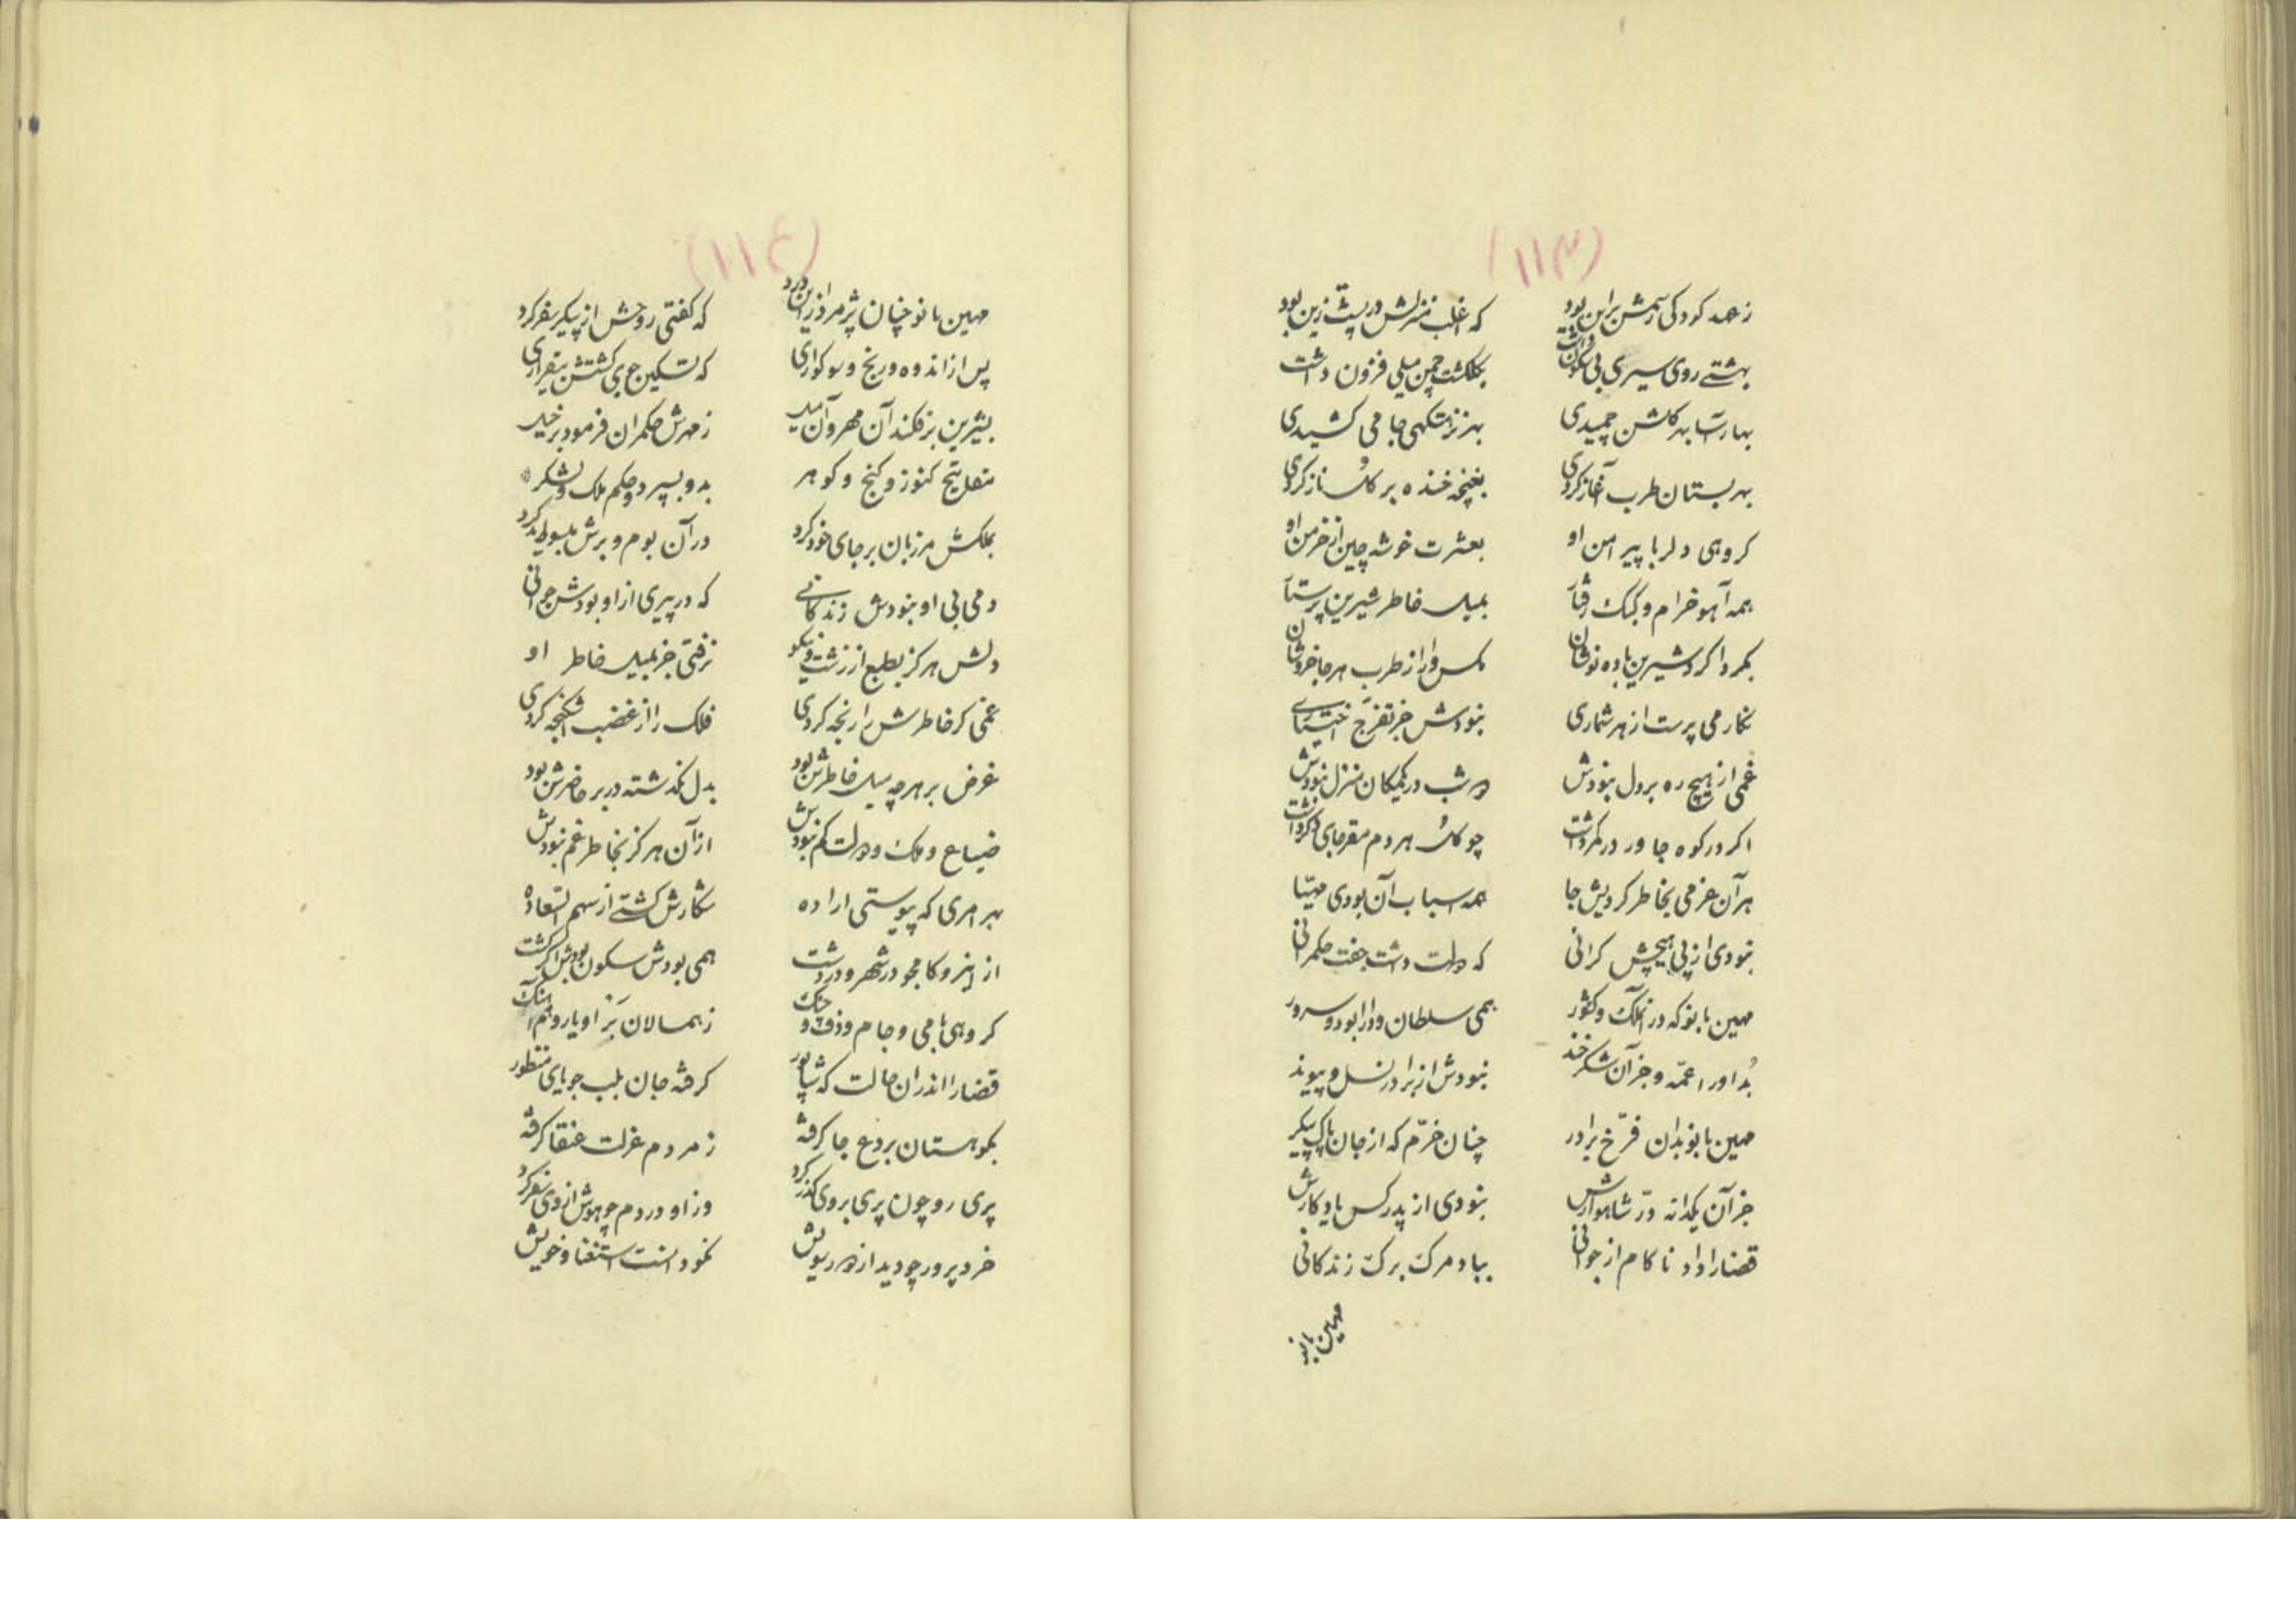 (۱۱۳)
زعهد کودکی رسمش براین بود که اغلب منزلش در پشت زین بود
بهشتے روی سیری بی سکون داشت بکلکشت چمن میلی فزون داشت
بهارآسا بهر کلشن چمیدی بهر نزهتکهی جامی کشیدی
بهر بستان طرب آغاز کردی بغنچه خنده بر کل ناز کردی
کروهی دلربا پیرامن او بعشرت خوشه چین از خرمن او
همه آهو خرام و کبک رفتار بمیل خاطر شیرین پرستار
بکرداکرد شیرین باده نوشان مکس وار از طرب هرجا خروشان
نکار می پرست از هر شماری نبودش جز تفرّج اختیاری
غمی از هیچ ره بر دل نبودش دو شب در یکمکان منزل نبودش
اکر در کوه جا ور در کمر داشت چو کل هر دم مقر جای دکر داشت
هر آن عزمی بخاطر کردیش جا همه اسباب آن بودی مهیّا
نبودی از پی هیچش کرانی که دولت داشت جفت حکمرانی
مهین بانو که در آنملک و کشور همی سلطان و دارا بود و سرور
بُد او را عمّه و جز آن شکرخند نبودش از برادر نسل و پیوند
مهین بانو بدان فرّخ برادر چنان خرّم که از جان پاک پیکر
جز آن یکدانه درّ شاهوارش نبودی از پدر کس یادکارش
قضا را داد ناکام از جوانی بباد مرک برک زندکانی
مهین بانو
(۱۱۴)
مهین بانو چنان پژمرد ازین درد که کفتی روحش از پیکر سفر کرد
پس از اندوه و رنج و سوکواری که تسکین جوی کشتش بیقراری
بشیرین برفکند آن مهر و آن میل زمهرش حکمران فرمود بر خیل
بدو بسپرد و حکم ملک و لشکر
بملکش مرزبان بر جای خود کرد در آن بوم و برش
دمی بی او نبودش زندکانے که در پیری از او بودش جوانی
دلش هرکز بطبع از زشت و نیکو نرفتی جز بمیل خاطر او
غمی کر خاطرش را رنجه کردی فلک را از غضب اشکنجه کردی
غرض بر هرچه میل خاطرش بود بدل نکذشته در بر حاضرش بود
ضیاع و ملک و دولت کم نبودش از آن هرکز بخاطر غم نبودش
بهر امری که پیوستی اراده شکارش کشتے از سهم
از اینرو کامجو در شهر و در دشت همی بودش سکون
کروهی با می و جام و دف و چنک زهمسالان بَر او یار و هم آهنک
قضا را اندران حالت که شاپور کرفته جان بلب جویای منظور
بکوهستان بردع جا کرفته زمردم عزلت عنقا کرفته
پری رو چون پری بروی کذر کرد وز او در دم چو هوش از وی سفر کرد
خردپرور چو دید از دور رویش نمود